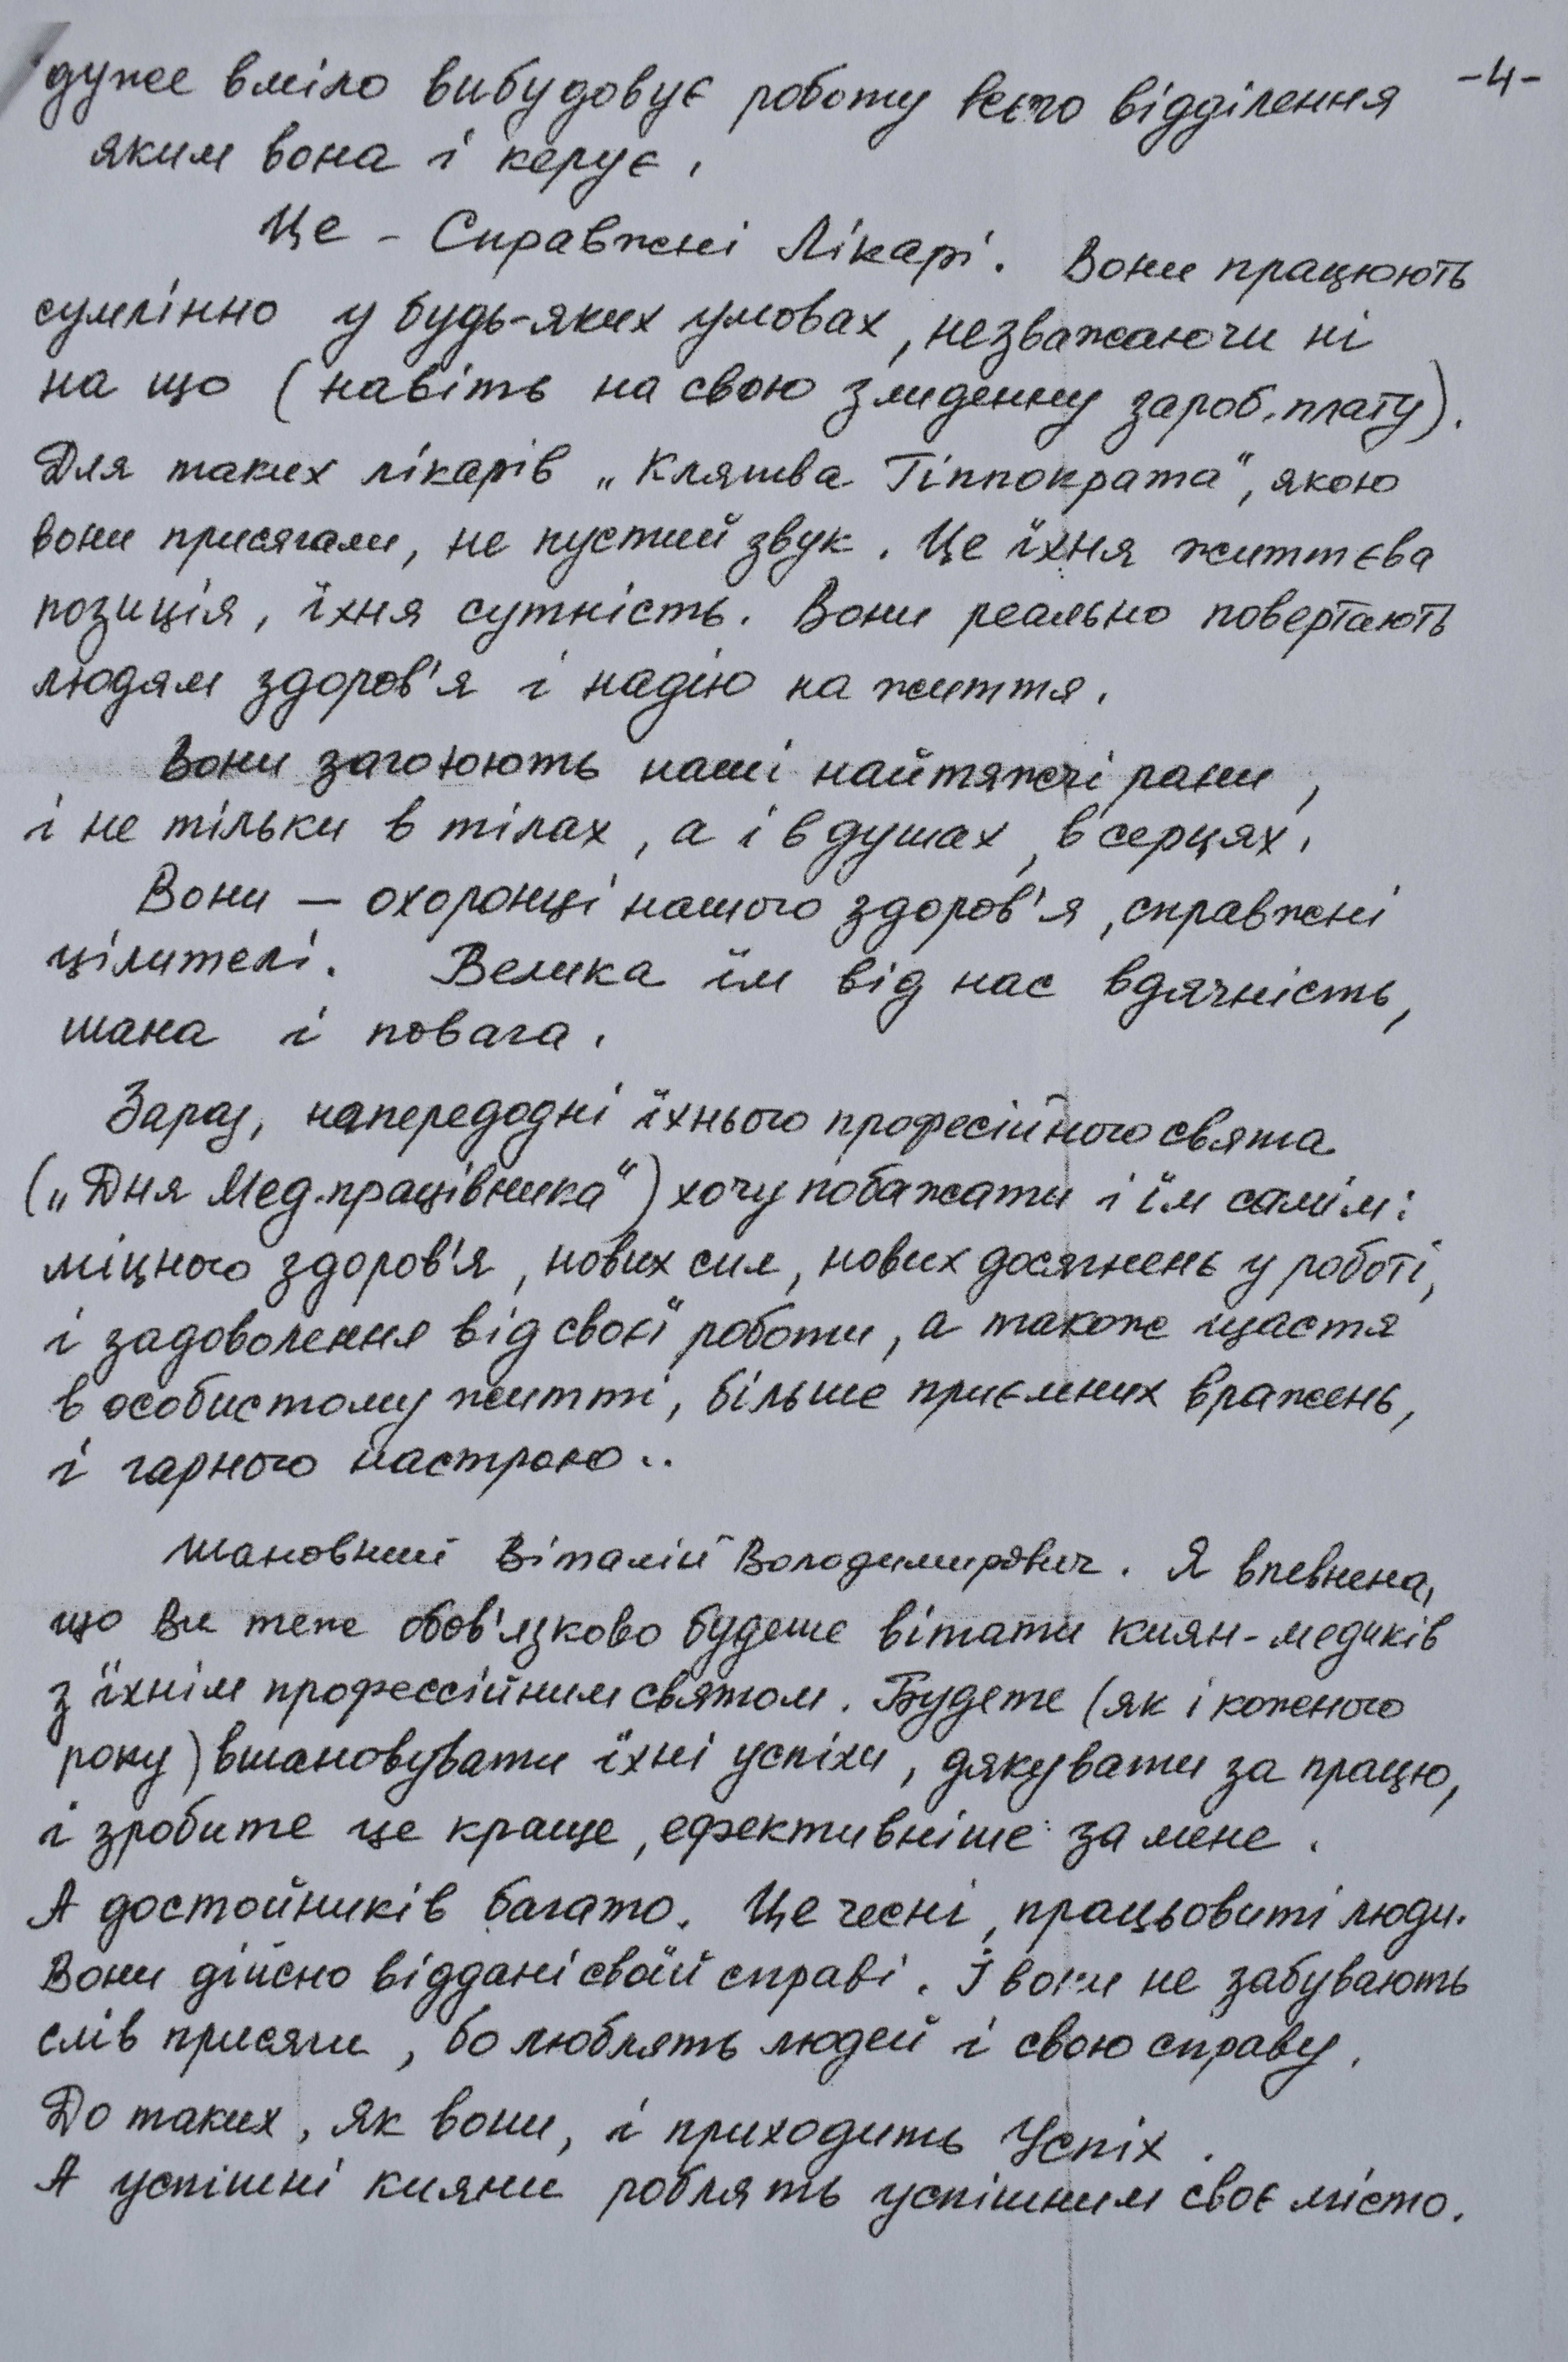 -4-
дуже вміло вибудовує роботу всього відділення
яким вона і керує.
Це - Справжні Лікарі. Вони працюють
сумлінно у будь-яких умовах, незважаючи ні
на що (навіть на свою злиденну зароб.плату).
Для таких лікарів „Клятва Гіппократа“, якою
вони присягали, не пустий звук. Це їхня життєва
позиція, їхня сутність. Вони реально повертають
людям здоров'я і надію на життя.
Вони загоюють наші найтяжчі рани,
і не тільки в тілах, а і в душах, в серцях.
Вони — охоронці нашого здоров'я, справжні
цілителі. Велика їм від нас вдячність,
шана і повага.
Зараз, напередодні їхнього професійного свята
(„Дня Мед.працівника“) хочу побажати і їм самім:
міцного здоров'я, нових сил, нових досягнень у роботі,
і задоволення від своєї роботи, а також щастя
в особистому житті, більше приємних вражень,
і гарного настрою..
Шановний Віталій Володимирович. Я впевнена,
що Ви теж обов'язково будете вітати киян-медиків
з їхнім профессійним святом. Будете (як і кожного
року) вшановувати їхні успіхи, дякувати за працю,
і зробите це краще, ефективніше за мене.
А достойників багато. Це чесні, працьовиті люди.
Вони дійсно віддані своїй справі. І вони не забувають
слів присяги, бо люблять людей і свою справу.
До таких, як вони, і приходить Успіх.
А успішні кияни роблять успішним своє місто.